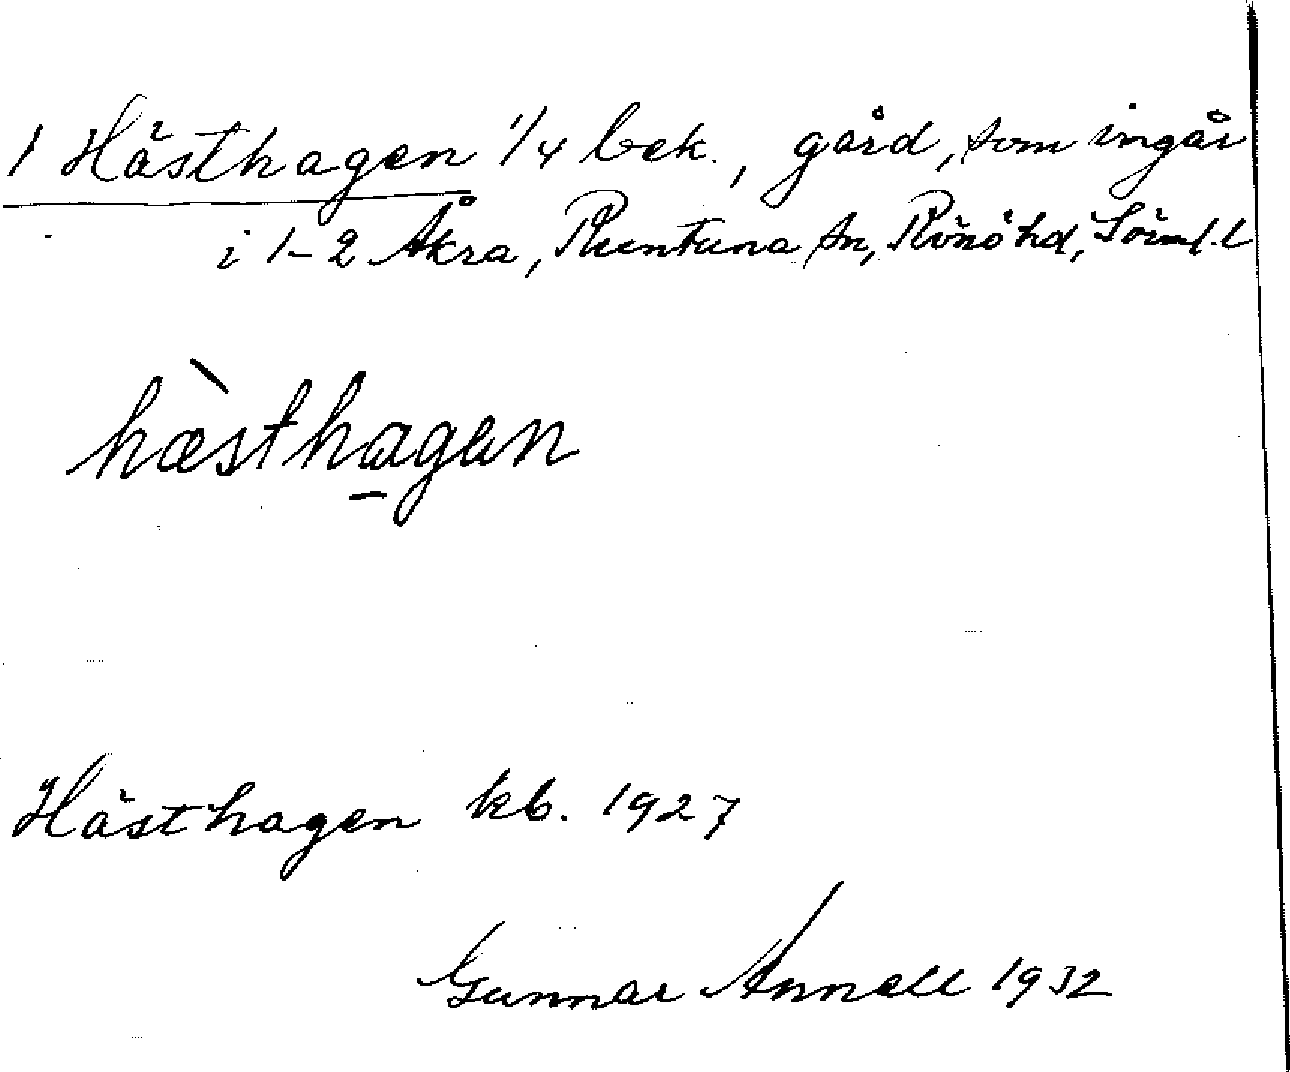 1 Hästhagen 1/4 bek., gård, som ingår
i 1-2 Åkra, Runtuna sn, Rönö hd, Söderml. l
hæ̀sthagen
Hästhagen kb. 1927
Gunnar Annell 1932